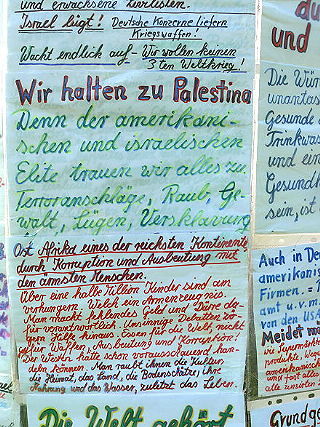 und erwachsene Zivilisten.
Israel lügt! Deutsche Konzerne liefern
Kriegswaffen!
Wacht endlich auf - Wir wollen keinen
3 ten Weltkrieg!
Wir halten zu Palestina
Denn der amerikani-
schen und israelischen
Elite trauen wir alles zu.
Terroranschläge, Raub, Ge-
walt, Lügen, Versklavung
Ost Afrika eines der reichsten Kontinente
durch Korruption und Ausbeutung mit
den ärmsten Menschen.
Über eine halbe Million Kinder sind am
verhungern. Welch ein Armenzeugnis.
Man macht fehlendes Geld und
für verantwortlich. Unsinnige
Hilfe hinaus. Essen für die Welt nicht
für Waffen, Ausbeutung und Korruption!
Die Westen hätte schon vorausschauend han-
deln können. Man raubt ihnen die Kulturen,
die Heimat, das Land, die Bodenschätze, ihre
Nahrung und das Wasser, zuletzt das Leben.
Die Welt gehört
und
Die Wür
unantas
Gesunde
Trinkwas
und ein
Gesundh
sein, ist
Auch in De
amerikanis
Firmen. -
amt u.v.m.
von den US
Meidet
Grundge